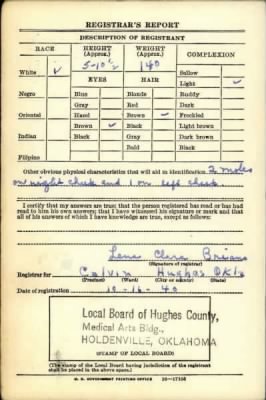 REGISTRAR'S REPORT
DESCRIPTION OF REGISTRANT
RACE HEIGHT (Approx.) WEIGHT (Approx.) COMPLEXION
5-10½ 140
White ✓ Sallow
EYES HAIR Light ✓
Negro Blue Blonde Ruddy
Gray Red Dark
Oriental Hazel Brown ✓ Freckled
Brown ✓ Black Light brown
Indian Black Gray Dark brown
Bald Black
Filipino
Other obvious physical characteristics that will aid in identification. 2 moles
on right cheek and 1 on left cheek
I certify that my answers are true; that the person registered has read or has had
read to him his own answers; that I have witnessed his signature or mark and that
all of his answers of which I have knowledge are true, except as follows:
Lena Clara
(Signature of registrar)
Registrar for Calvin Hughes Okla
(Precinct) (Ward) (City or county) (State)
Date of registration 10-16-40
Local Board of Hughes County,
Medical Arts Bldg.,
HOLDENVILLE, OKLAHOMA
(STAMP OF LOCAL BOARD)
(The stamp of the Local Board having jurisdiction of the registrant
shall be placed in the above space.)
U. S. GOVERNMENT PRINTING OFFICE